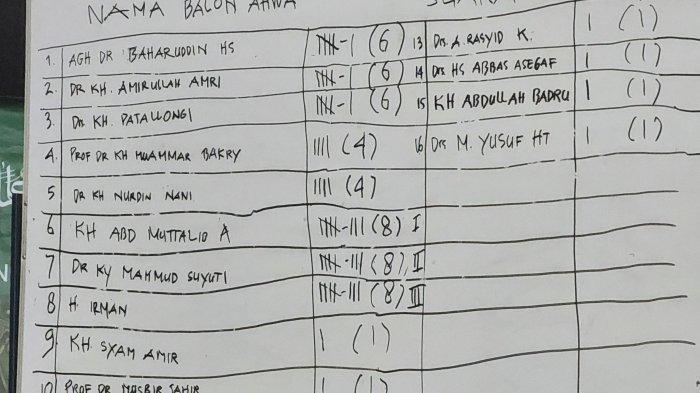 NAMA BALON AHWA
1. AGH DR BAHARUDDIN HS 𝍸-I (6) 13 Drs. A. RASYID K. I (1)
2. DR KH. AMIRULLAH AMRI 𝍸-I (6) 14 Drs HS ABBAS ASEGAF I (1)
3. DRS KH. PATALLONGI 𝍸-I (6) 15 KH ABDULLAH BADRU I (1)
4. PROF DR KH MUAMMAR BAKRY IIII (4) 16 Drs M. YUSUF HT I (1)
5 DR KH NURDIN NANI IIII (4)
6 KH ABD MUTTALIB A 𝍸-III (8) I
7 DR KY MAHMUD SUYUTI 𝍸-III (8) II
8 H IRMAN 𝍸-III (8) III
9 KH. SYAM AMIR I (1)
10 PROF DR I (1)